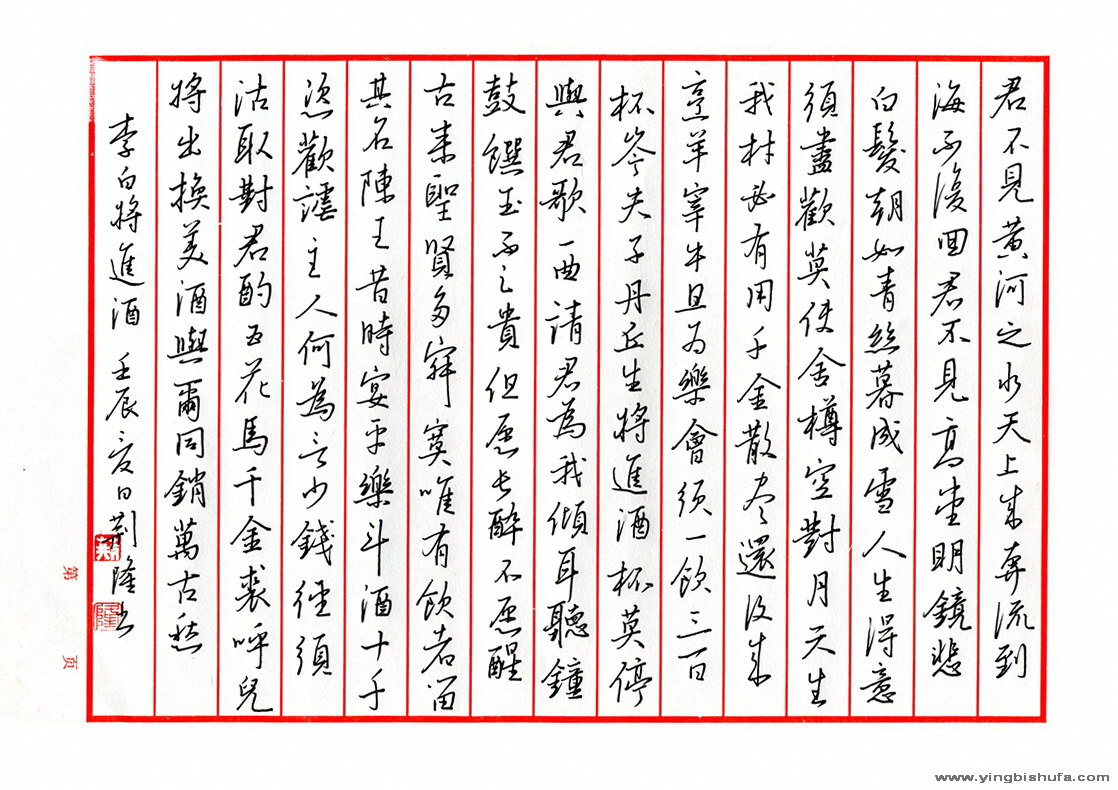 君不見黃河之水天上來奔流到
海不復回君不見高堂明鏡悲
白髮朝如青絲暮成雪人生得意
須盡歡莫使金樽空對月天生
我材必有用千金散尽還復來
烹羊宰牛且为樂會須一飲三百
杯岑夫子丹丘生將進酒杯莫停
與君歌一曲請君為我傾耳聽鐘
鼓饌玉不足貴但愿長醉不愿醒
古來聖賢多寂寞唯有飲者留
其名陳王昔時宴平樂斗酒十千
恣歡謔主人何為言少錢徑須
沽取對君酌五花馬千金裘呼兒
將出換美酒與爾同銷萬古愁
李白將進酒 壬辰夏日荊隆书
荊
隆
第 页
www.yingbishufa.com